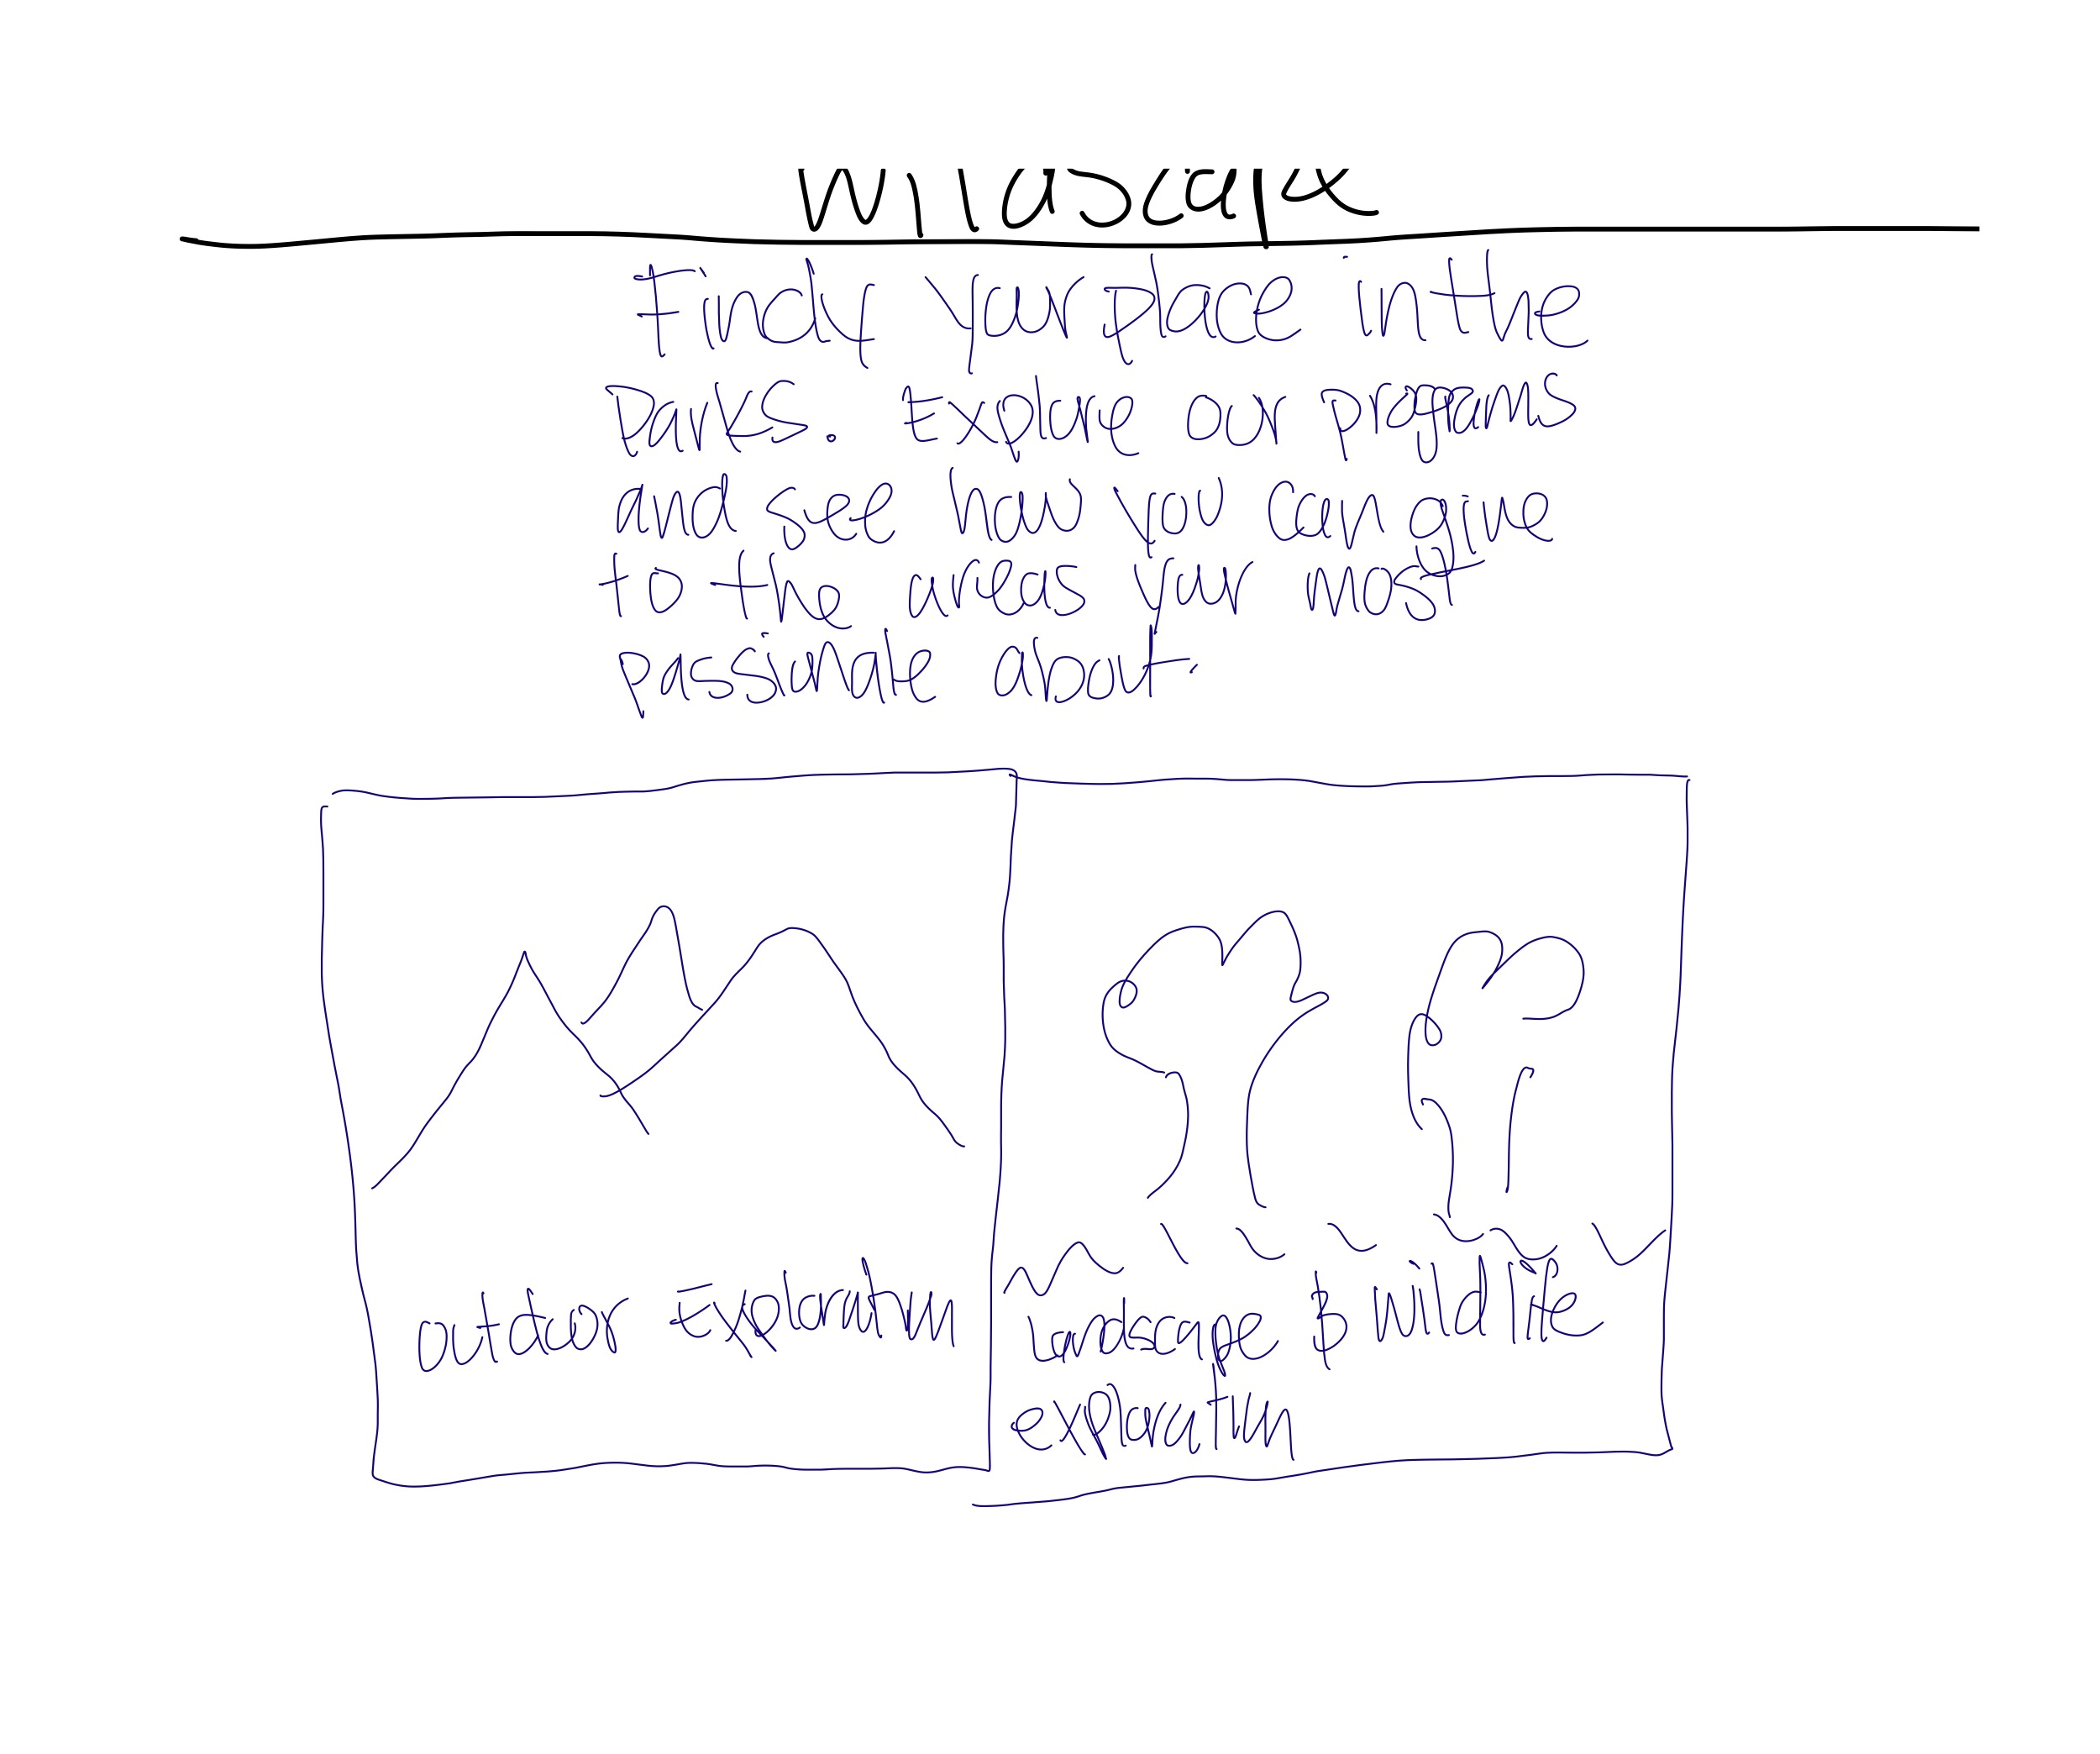 Wildscape
Find your place in the
parks. Explore our programs
and see how you can give
to the areas your most
passionate about.
outdoor Exploration
Landscape & wildlife
exploration